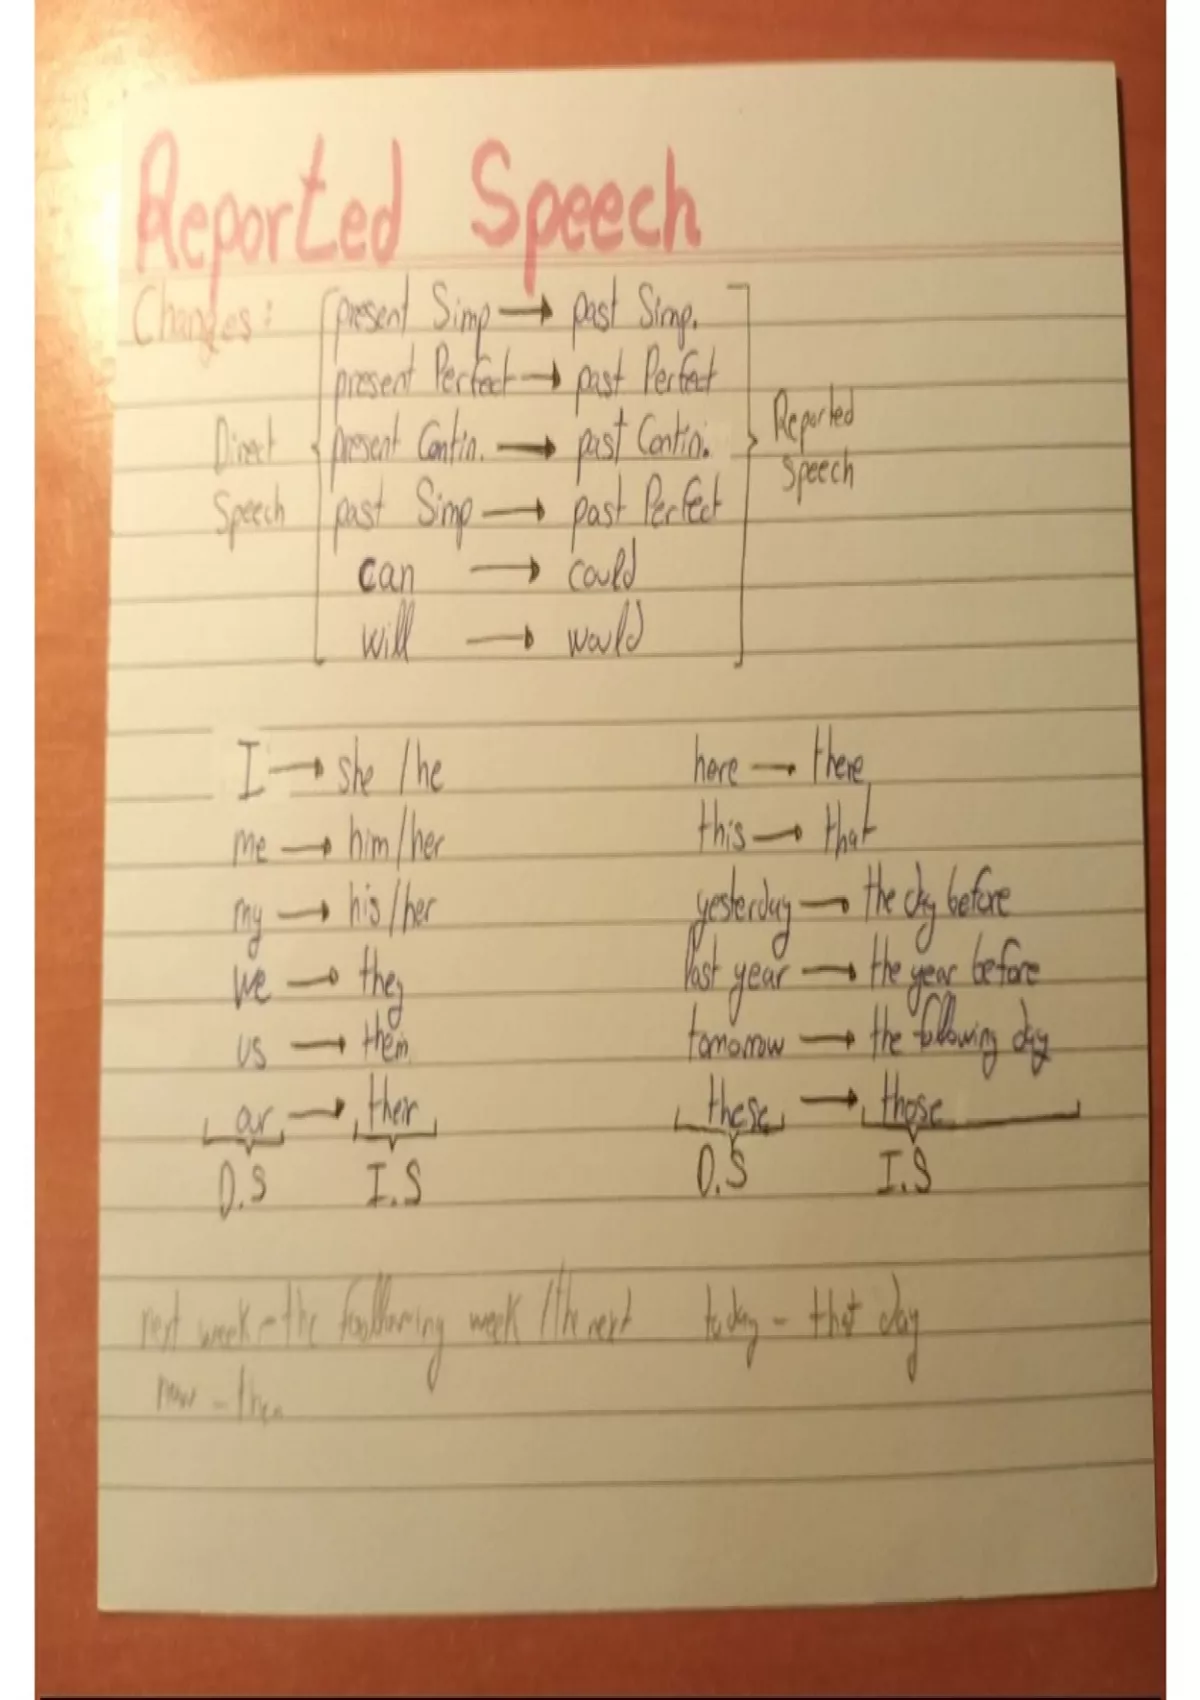 Reported Speech
Changes: present Simp → past Simp.
present Perfect → past Perfect
Direct Speech present Contin. → past Contin. Reported Speech
past Simp → past Perfect
can → could
will → would
I → she / he here → there
me → him / her this → that
my → his / her yesterday → the day before
we → they last year → the year before
us → them tomorrow → the following day
our → their these → those
D.S I.S D.S I.S
next week - the following week / the next today - that day
now - then